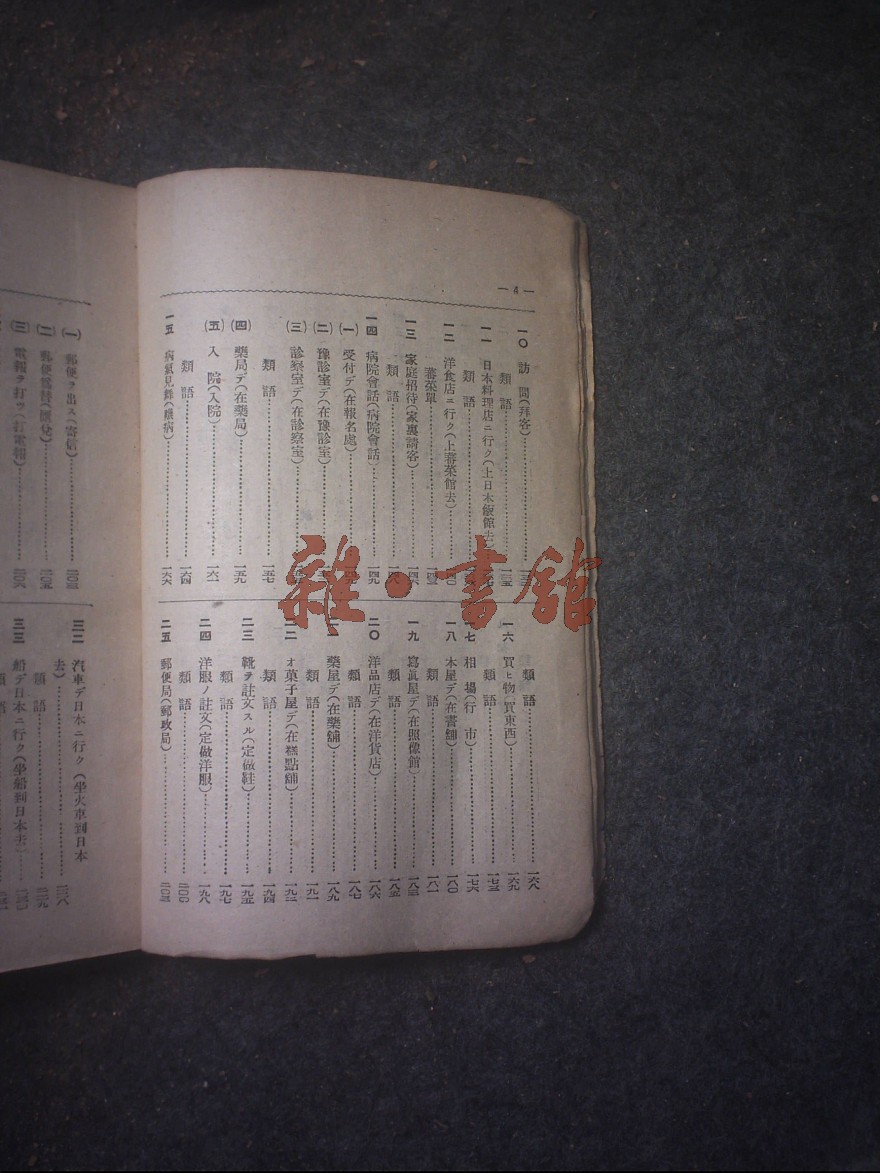 — 4 —
一〇 訪問(拜客)
類語……一三五
一一 日本料理店ニ行ク(上日本飯館去)
類語
一二 洋食店ニ行ク(上蕃菜館去)……一四〇
蕃菜單……一四三
一三 家庭招待(家裏請客)……一四六
類語……一四八
一四 病院會話(病院會話)……一四九
(一) 受付デ(在報名處)
(二) 豫診室デ(在豫診室)
(三) 診察室デ(在診察室)
類語……一五七
(四) 藥局デ(在藥局)……一五九
(五) 入院(入院)……一六一
類語……一六四
一五 病氣見舞(瞧病)……一六六
類語……一六八
一六 買ヒ物(買東西)……一六九
類語……一七三
一七 相場(行市)……一七六
一八 本屋デ(在書舖)……一八〇
類語……一八一
一九 寫眞屋デ(在照像館)……一八三
類語……一八五
二〇 洋品店デ(在洋貨店)……一八六
類語……一八七
二一 藥屋デ(在藥舖)……一八九
類語……一九一
二二 オ菓子屋デ(在糕點舖)……一九二
類語……一九四
二三 靴ヲ註文スル(定做鞋)……一九五
類語……一九七
二四 洋服ノ註文(定做洋服)……一九八
類語……二〇〇
二五 郵便局(郵政局)……二〇三
(一) 郵便ヲ出ス(寄信)……二〇三
(二) 郵便爲替(匯兌)……二〇五
(三) 電報ヲ打ツ(打電報)……二〇六
三二 汽車デ日本ニ行ク(坐火車到日本
去)……二二八
類語……二二九
三三 船デ日本ニ行ク(坐船到日本去)
類語
雜·書舘